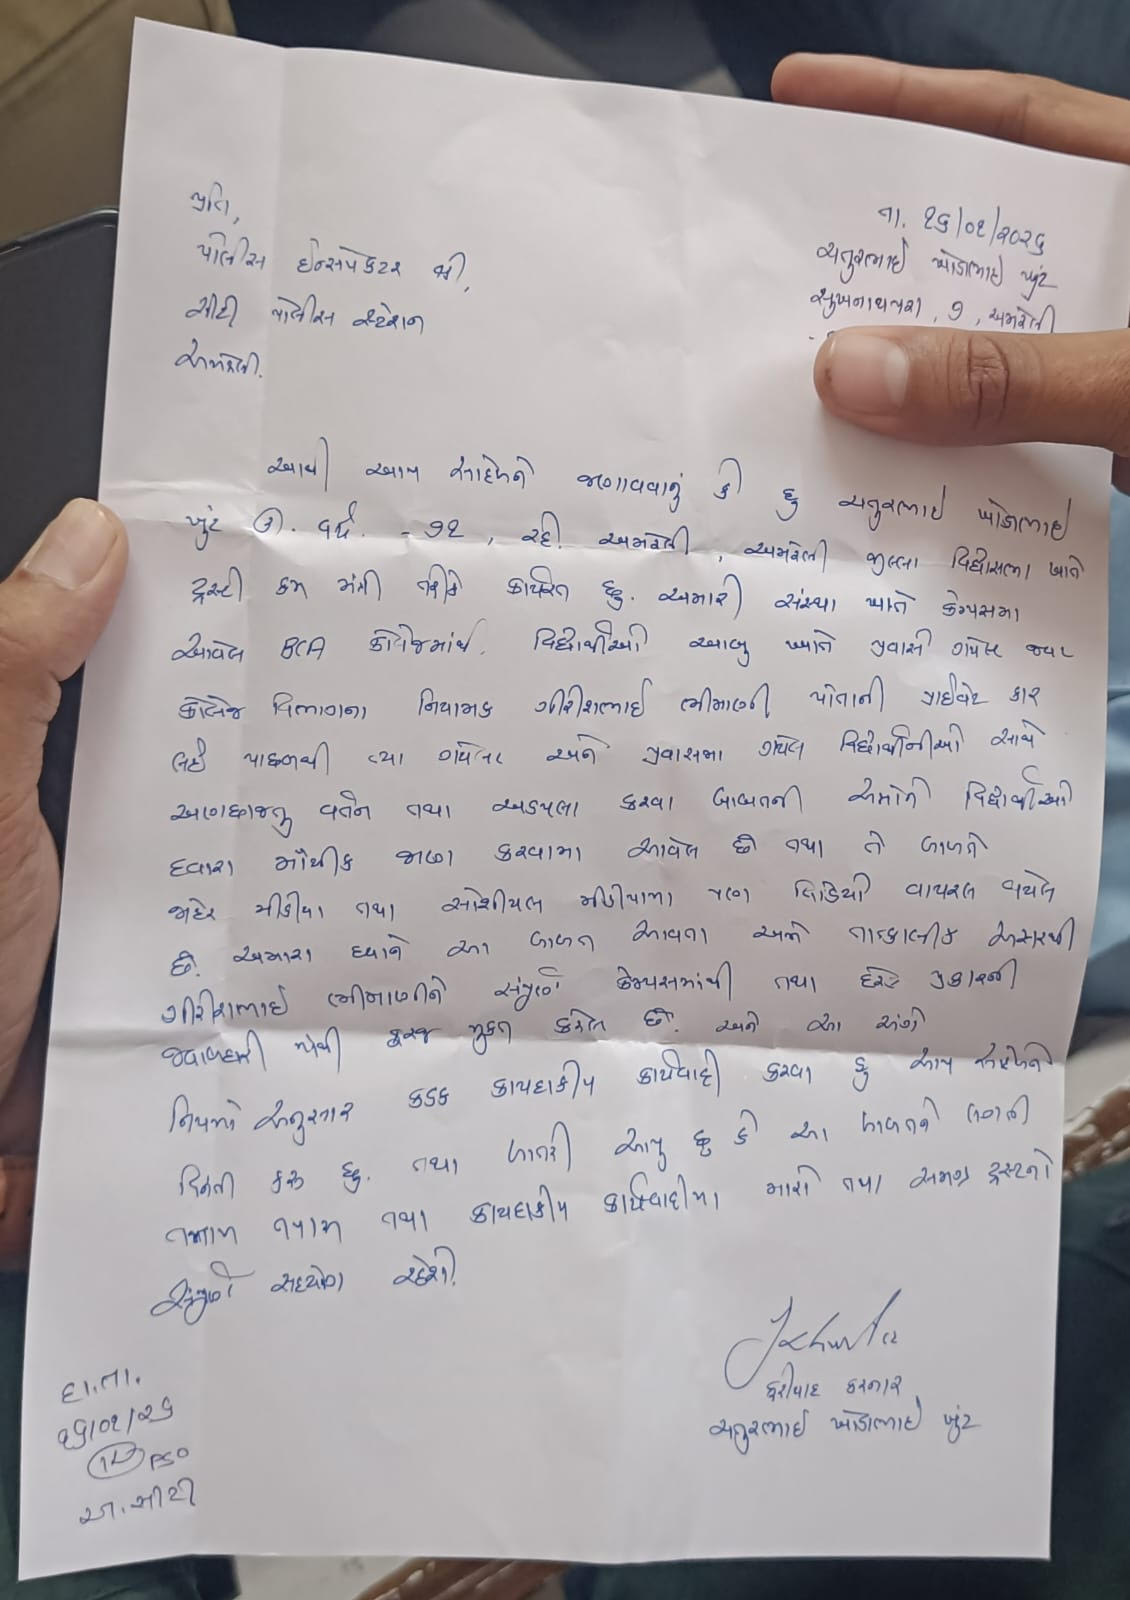 પ્રતિ,
તા. ૨૬/૦૨/૨૦૨૬
પોલીસ ઈન્સપેકટર શ્રી,
ચતુરભાઈ ખોડાભાઈ ખુંટ
સીટી પોલીસ સ્ટેશન
સુખનાથપરા, ૭, અમરેલી
અમરેલી.
આથી આપ સાહેબને જણાવવાનું કે હું ચતુરભાઈ ખોડાભાઈ
ખુંટ ઉ. વર્ષ. - ૭૨, રહે. અમરેલી, અમરેલી જીલ્લા વિદ્યાસભા ખાતે
ટ્રસ્ટી કમ મંત્રી તરીકે કાર્યરત છું. અમારી સંસ્થા ખાતે કેમ્પસમા
આવેલ BCA કોલેજમાંથી વિદ્યાર્થીઓ આબુ ખાતે પ્રવાસે ગયેલ જ્યાં
કોલેજ વિભાગના નિયામક ગીરીશભાઈ ભીમાણી પોતાની પ્રાઈવેટ કાર
લઈ પાછળથી ત્યા ગયેલ અને પ્રવાસમા ગયેલ વિદ્યાર્થીનીઓ સાથે
અણછાજતુ વર્તન તથા અડપલા કરવા બાબતની અમોને વિદ્યાર્થીઓ
દ્વારા મૌખીક જાણ કરવામા આવેલ છે તથા તે બાબતે
જાહેર મીડીયા તથા સોશીયલ મીડીયામા પણ વિડિયો વાયરલ થયેલ
છે. અમારા ધ્યાને આ બાબત આવતા અમે તાત્કાલીક અસરથી
ગીરીશભાઈ ભીમાણીને સંપુર્ણ કેમ્પસમાંથી તથા દરેક પ્રકારની
જવાબદારી માથી ફરજ મુકત કરેલ છે. અને આ અંગે
નિયમો અનુસાર કડક કાયદાકીય કાર્યવાહી કરવા હું આપ સાહેબને
વિનંતી કરૂ છું. તથા ખાતરી આપુ છું કે આ બાબતને લગતી
તમામ તપાસ તથા કાયદાકીય કાર્યવાહીમા મારો તથા સમગ્ર ટ્રસ્ટનો
સંપુર્ણ સહયોગ રહેશે.
ફરીયાદ કરનાર
ચતુરભાઈ ખોડાભાઈ ખુંટ
દા.તા.
૨૬/૦૨/૨૬
PSO
અ.સીટી